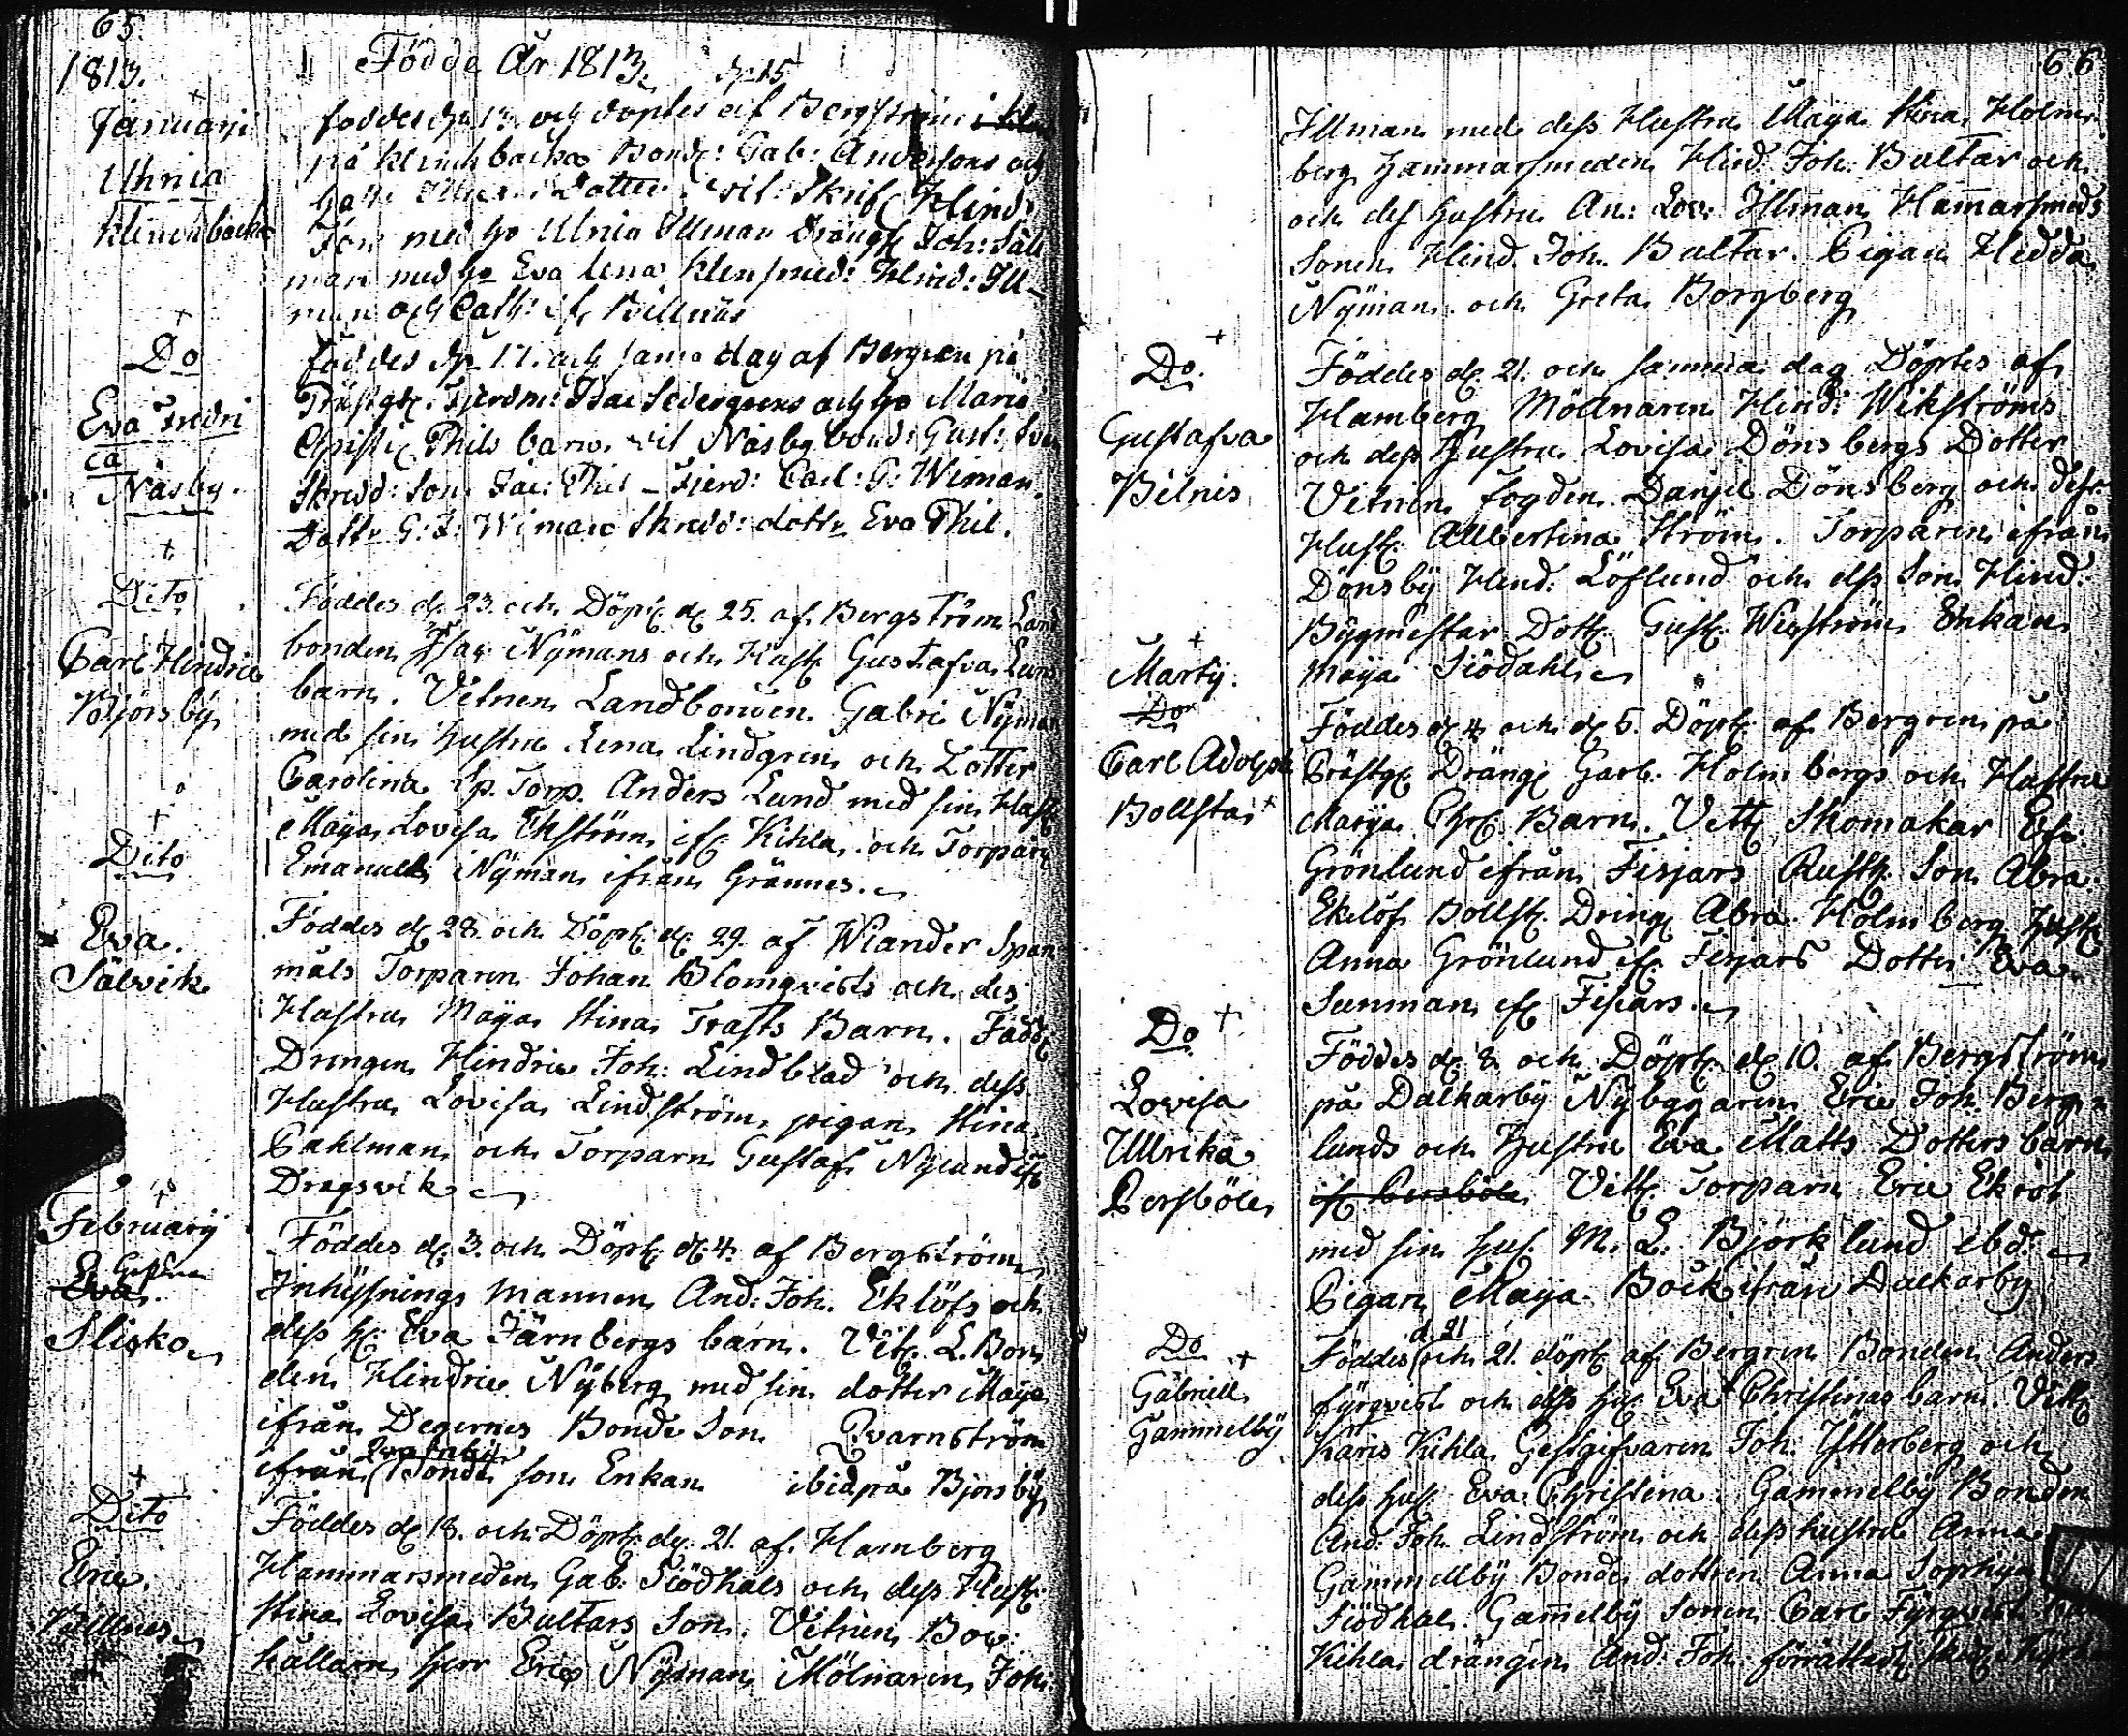 65.
1813.
Födde År 1813.
Januarij
Ulnia
Klinckbacka
föddes dn 13. och döptes af Bergström
på Klinckbacka Bond: Gab: Andersons och
Dotter. Hind:
Jon med ho Ulnia Illman Dräng Joh: Säll
man med ho Eva Lena Klensmed: Hind: Ill-
man och Cath: if Billnäs
Do
Eva Fredri
ca
Näsby.
föddes dn 17. och samma dag af Bergren på
Prästg. Fjerdm: Isac Sedergrens och ho Maria
Phils barn. vit Näsby bond: Gust:
Skredd: Son Jac: Phil - Fjerd: Carl: G: Wiman.
Dottr G: J: Wiman Skredd: dottr Eva Phil.
Dito
Carl Hindric
Björsby
Föddes d. 23. och Döpt d. 25. af Bergström Land
bonden Isac Nÿmans och Hust Gustafva Lunds
barn. Vitnen Landbonden Gabri Nÿman
med sin hustru Lena Lindgren och Dotter
Carolina Sp. Torp. Anders Lund med sin Hust
Maya Lovisa Ekström if. Kihla och Torparn
Emanuel Nÿman ifrån Grännes.
Dito
Eva.
Sälvik
Föddes d. 28. och Döpt d. 29. af Wiander Span
måls Torparen Johan Blomqvists och des
Hustru Maya Stina Trasts Barn. Fadd
Drengen Hindric Joh: Lindblad och dess
Hustru Lovisa Lindström, pigan Stina
Pahlman och Torparn Gustaf Nÿlund if
Dragsvik
Februarij
Eva.
Slisko
Föddes d. 3. och Döpt d. 4. af Bergström
Inhÿsnings mannen And: Joh. Eklöfs och
dess h. Eva Järnbergs barn. Vit. L. Bon
den Hindric Nÿberg med sin dotter Maya
ifrån Degernes Bonde Son Qvarnström
ifrån Bonde son Enkan ibid på Bjorsbÿ
Dito
Eric.
Billnes
Föddes d. 18. och Döpt d. 21. af Hamberg
Hammarsmeden Gab: Siödhals och dess Hust.
Stina Lovisa Bultars Son. Vitnen Bok:
hållarn herr Eric Nÿman Mölnaren Joh:
66
Illman med dess Hustru Maya Stina Holm
berg Hammarsmeden Hind. Joh. Bultar och
och des hustru An: Lov: Illman Hammarsmeds
Sonen Hind. Joh. Bultar. Pigan Hedda
Nÿman och Greta Borgberg
Do.
Gustafva
Bilnis
Föddes d. 21. och samma dag Döptes af
Hamberg Möllnaren Hind: Wikströms
och dess Hustru Lovisa Dönsbergs Dotter
Vitnen fogden Danjel Dönsberg och dess
Hust. Allbertina Ström. Torparen ifrån
Dönsbÿ Hind: Löflund och dess Son Hind:
Bÿgmestar Dott. Gust. Wikström Enkan
Maya Siödahl
Martÿ.
Do
Carl Adolph
Bollstai
Föddes d. 4 och d. 5. Döpt af Bergren på
Prästg. Dräng Garb. Holmbergs och Hustru
Marÿa Barn. Vitt. Skomakar
Grönlund ifrån Fisjars Rust. Son Abra.
Eklöf Bollst. Dring Abra. Holmberg Hust
Anna Grönlund if. Fisjars Dotter Eva
Sunman if Fiskars.
Do
Lovisa
Ullrika
Persböle
Föddes d. 8. och Döpt d. 10. af Bergström
på Dalkarbÿ Nÿbggaren Eric Joh. Berg-
lunds och Hustru Eva Matts Dotters barn
if Persböle Vitt. Torparn Eric Ekrot
med sin hus. M. L. Björklund ibd.
Pigan Maya Böck ifrån Dalkarby
Do
Gabriell
Gammelbÿ
Föddes d 21 och 21. döpt af Bergren Bonden Anders
fÿrqvist och dess hus. Eva Christinas barn. Vitt.
Karis Kihla Gestgifvaren Joh. Ÿtterberg och
dess hus. Eva Christina. Gammelbÿ Bonden
And. Joh. Lindström och dess hustru Anna
Gammelbÿ Bonde dottren Anna Sophÿa
Siödhal. Gammelbÿ sonen Carl Fÿrqvist
Kihla drängen And. Joh. förrättad